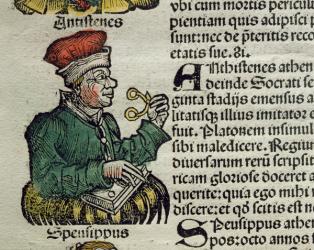 Antistenes
Speusippus
vbi cum mortis pericul
pientiam quis adipisci p
sunt: nec de p̄teritis reco
etatis sue.81.
Athistenes athen
deinde Socrati se
ginta stadijs emensus a
litatisq̃ illius imitator e
fuit. Platonem insimul
sibi maledicere. Regium
diversarum rerũ scripsit
ricam gloriose doceret a
querite: quia ego mihi r
discere: et qđ scitis est ne
Speusippus athen
pos: octo annos